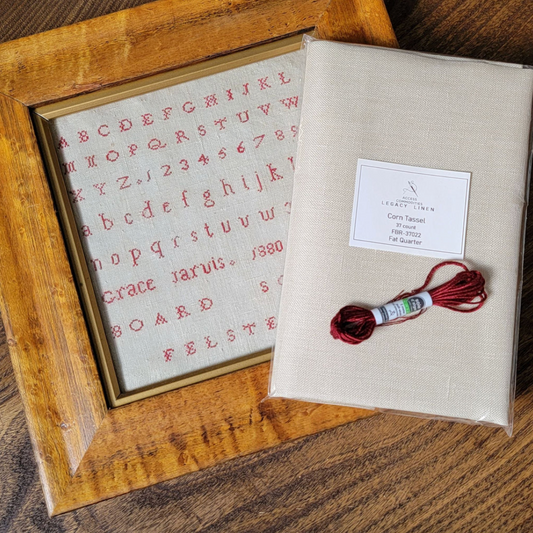 A B C D E F G H I J K L
M N O P Q R S T U V W
X Y Z . 1 2 3 4 5 6 7 8 9
a b c d e f g h i j k l
n o p q r s t u v w
Grace Jarvis. 1880
BOARD S
FELSTE
ACCESS COMMODITIES
LEGACY LINEN
Corn Tassel
37 count
FBR-37022
Fat Quarter